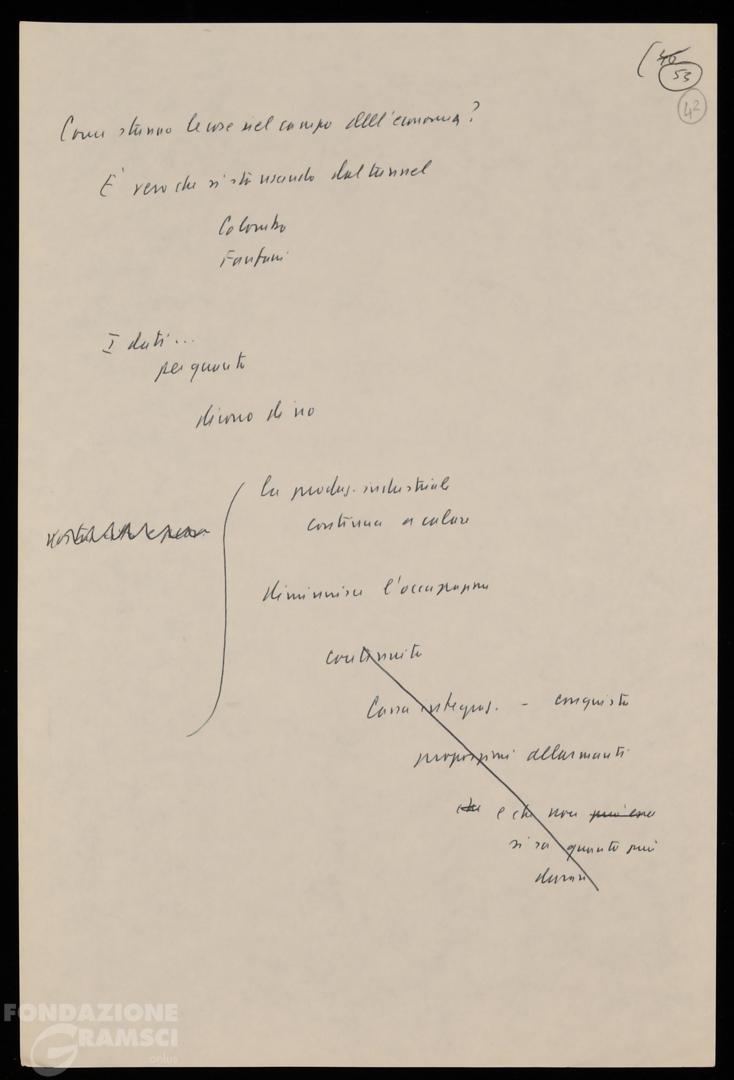 (40
53
42
Come stanno le cose nel campo dell'economia?
È vero che si sta uscendo dal tunnel
Colombo
Fanfani
I dati...
per quanto
dicono di no
la produz. industriale
continua a calare
diminuisce l'occupazione
continuità
Cassa integraz. - conquista
proporzioni allarmanti
che e che non può essere
si sa quanto può
durare
FONDAZIONE
GRAMSCI
onlus